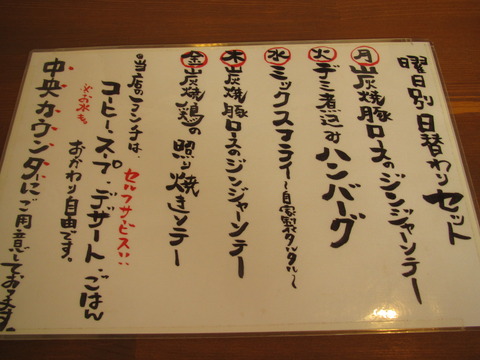 曜日別日替わりセット
月 炭焼豚ロースのジンジャーソテー
火 デミ煮込みハンバーグ
水 ミックスフライ〜自家製タルタル〜
木 炭焼豚ロースのジンジャーソテー
金 炭焼鶏の照り焼きソテー
◎当店のランチは、セルフサービス!!
コーヒー、スープ、デザート、ごはん
※お水も。
おかわり自由です。
中央カウンターにご用意しております。